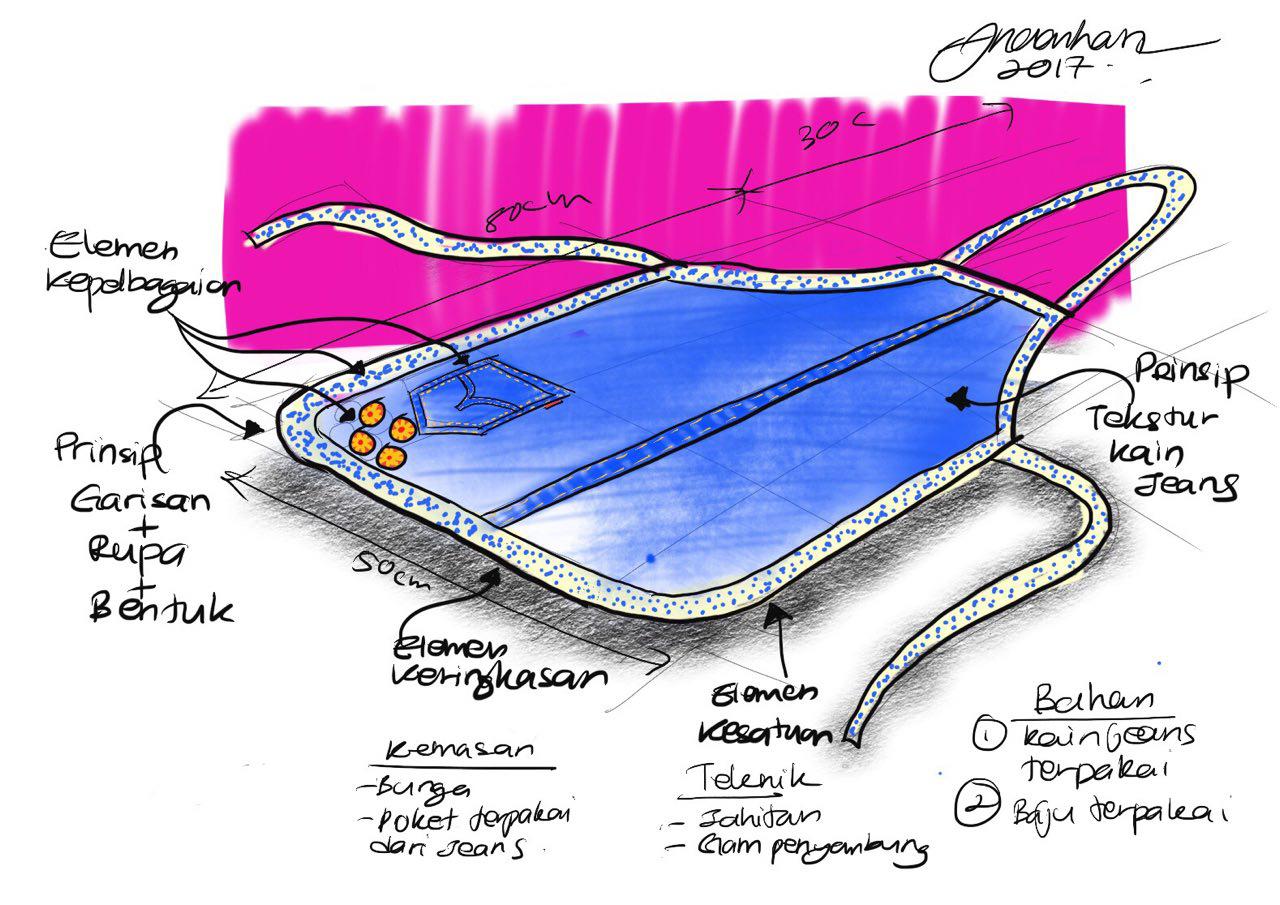 2017
30c
80cm
Elemen
Kepelbagaian
Prinsip
Tekstur
kain
Jeans
Prinsip
Garisan
+
Rupa
+
Bentuk
50cm
Elemen
Keringkasan
Elemen
Kesatuan
Bahan
1 kain jeans
terpakai
2 Baju terpakai
Kemasan
- Bunga
- Poket terpakai
dari Jeans.
Teknik
- Jahitan
- Gam penyambung